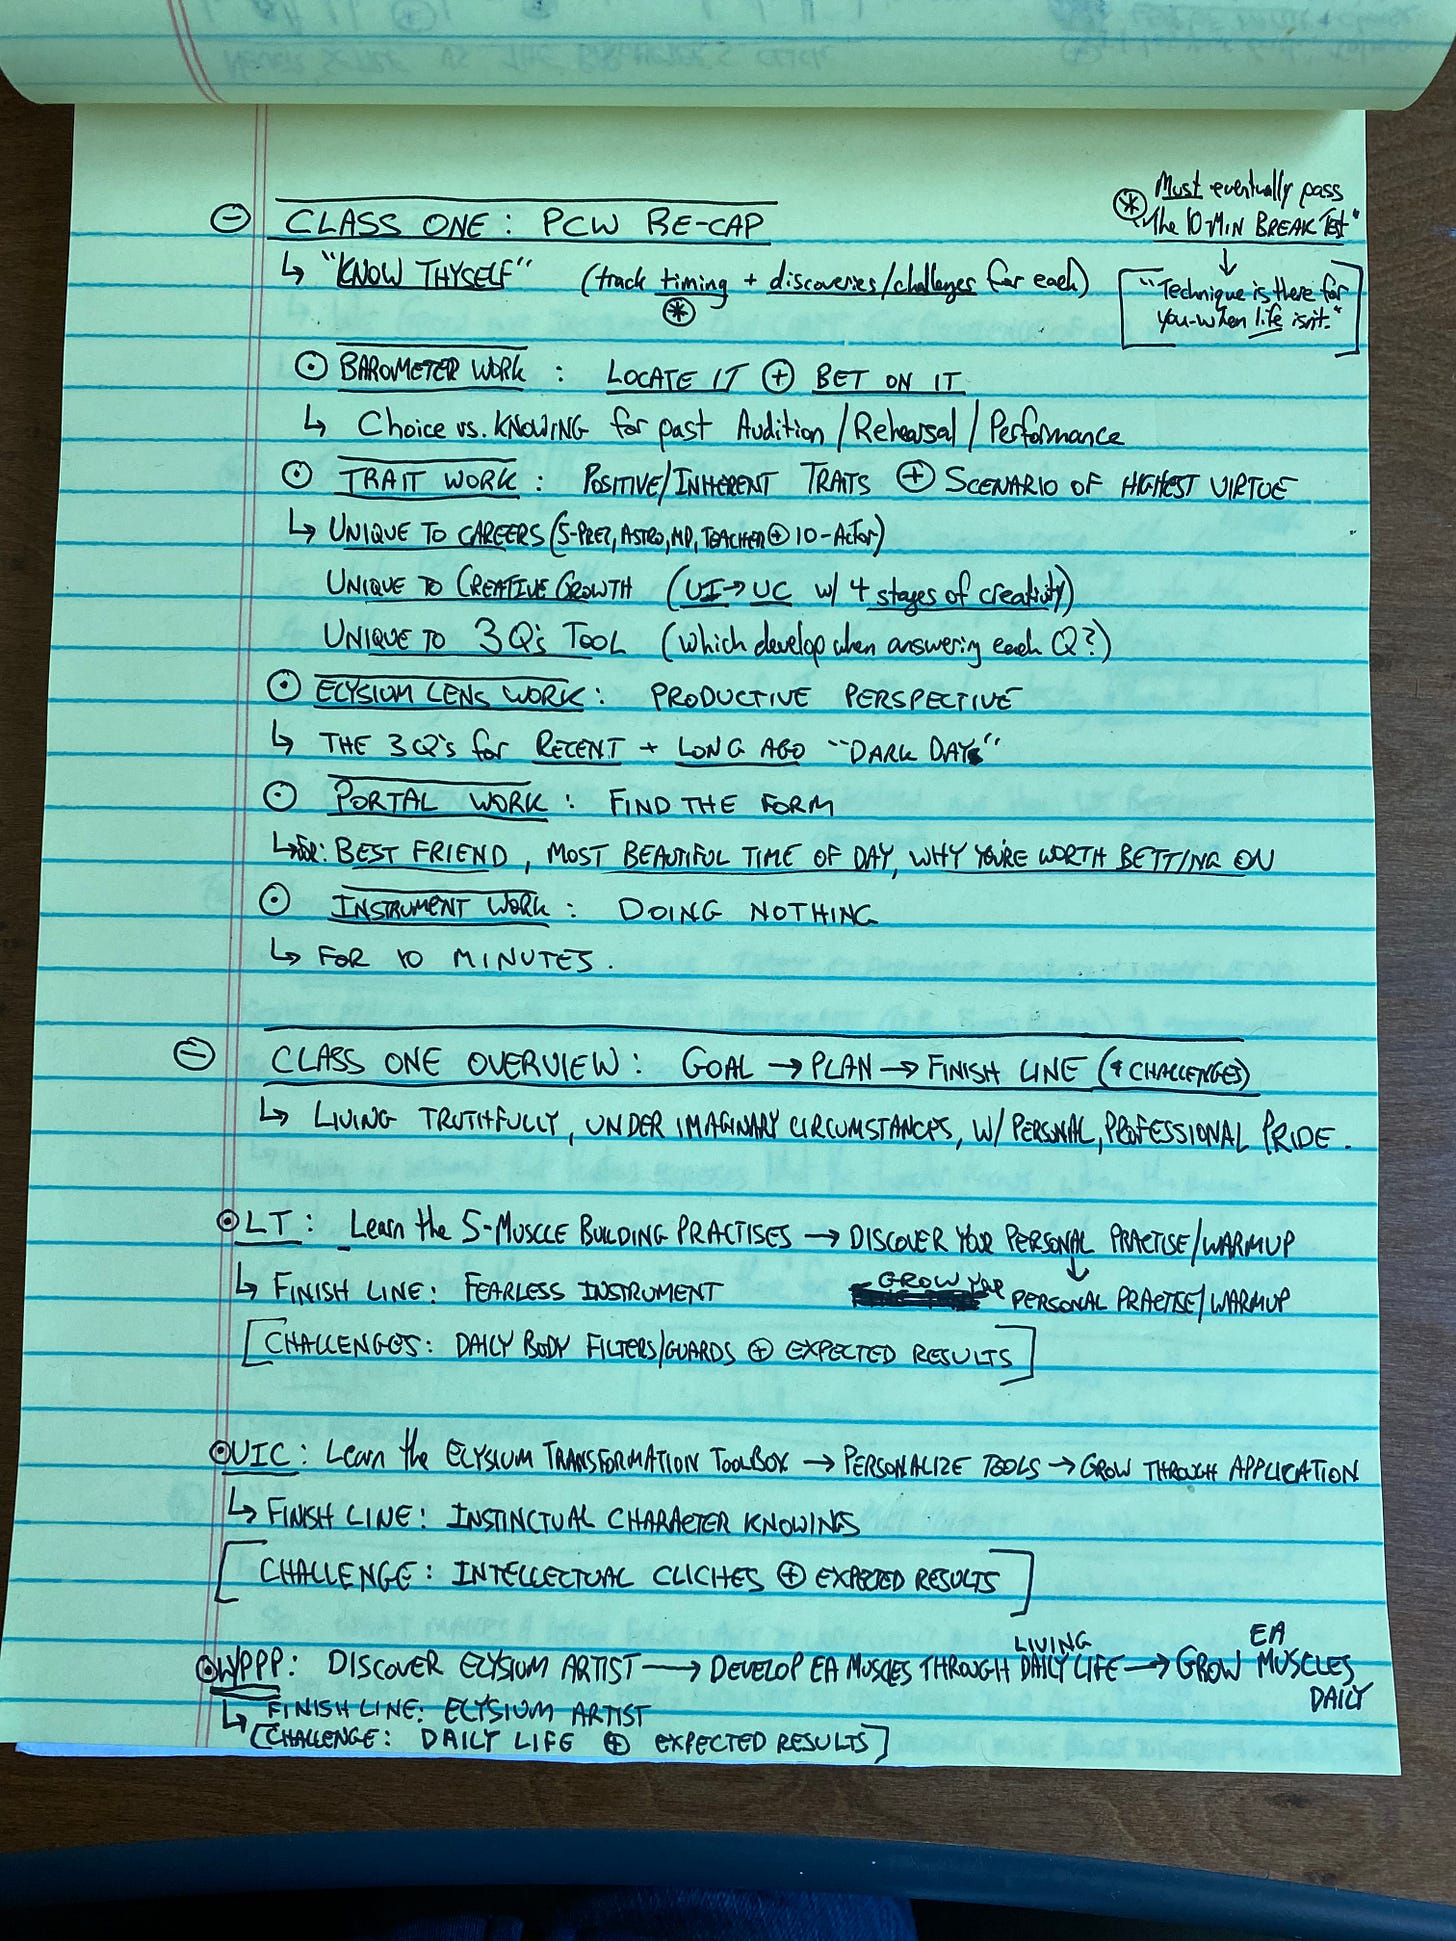 ⊖ CLASS ONE: PCW RE-CAP
↳ "KNOW THYSELF" (track timing + discoveries/challenges for each)
⊛
⊛ Must eventually pass
"The 10-MIN BREAK Test"
↓
["Technique is there for
you-when life isn't."]
⊙ BAROMETER WORK: LOCATE IT ⊕ BET ON IT
↳ Choice vs. KNOWING for past Audition/Rehearsal/Performance
⊙ TRAIT WORK: POSITIVE/INHERENT TRAITS ⊕ SCENARIO OF HIGHEST VIRTUE
↳ UNIQUE TO CAREERS (5-PREZ, ASTRO, MD, TEACHER ⊕ 10-Actor)
UNIQUE TO CREATIVE GROWTH (UI→UC w/ 4 stages of creativity)
UNIQUE TO 3 Q's TOOL (which develop when answering each Q?)
⊙ ELYSIUM LENS WORK: PRODUCTIVE PERSPECTIVE
↳ THE 3 Q's for RECENT + LONG AGO "DARK DAYS"
⊙ PORTAL WORK: FIND THE FORM
↳ FOR: BEST FRIEND, MOST BEAUTIFUL TIME OF DAY, WHY YOU'RE WORTH BETTING ON
⊙ INSTRUMENT WORK: DOING NOTHING
↳ FOR 10 MINUTES.
⊖ CLASS ONE OVERVIEW: GOAL → PLAN → FINISH LINE (+ CHALLENGES)
↳ LIVING TRUTHFULLY, UNDER IMAGINARY CIRCUMSTANCES, W/ PERSONAL, PROFESSIONAL PRIDE.
⊙ LT: Learn the 5-MUSCLE BUILDING PRACTISES → DISCOVER YOUR PERSONAL PRACTISE/WARMUP
↓
↳ FINISH LINE: FEARLESS INSTRUMENT GROW YOUR PERSONAL PRACTISE/WARMUP
[CHALLENGES: DAILY BODY FILTERS/GUARDS ⊕ EXPECTED RESULTS]
⊙ UIC: Learn the ELYSIUM TRANSFORMATION TOOLBOX → PERSONALIZE TOOLS → GROW THROUGH APPLICATION
↳ FINISH LINE: INSTINCTUAL CHARACTER KNOWINGS
[CHALLENGE: INTELLECTUAL CLICHES ⊕ EXPECTED RESULTS]
⊙ W/PPP: DISCOVER ELYSIUM ARTIST → DEVELOP EA MUSCLES THROUGH LIVING DAILY LIFE → GROW EA MUSCLES
DAILY
↳ FINISH LINE: ELYSIUM ARTIST
[CHALLENGE: DAILY LIFE ⊕ EXPECTED RESULTS]